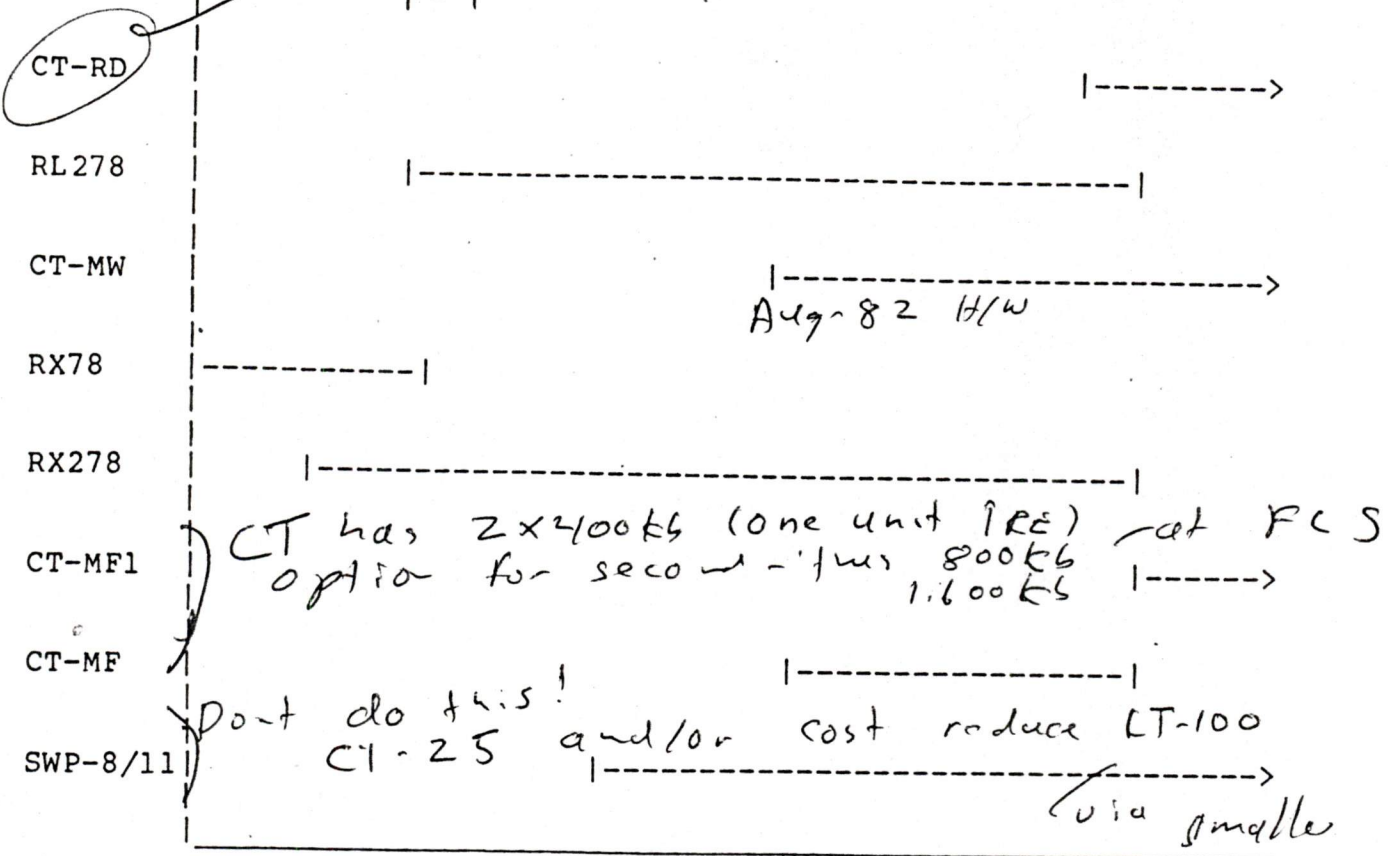 CT-RD |--------->
RL278 |------------------------------------|
CT-MW |------------------------>
Aug-82 H/W
RX78 -----------|
RX278 |----------------------------------------|
CT has 2x400kb (one unit
option for second - thus 800kb at FCS
CT-MF1 |------>
1.600kb
CT-MF |----------------|
Dont do this!
CT-25 and/or cost reduce CT-100
SWP-8/11 |---------------------------------->
via smaller